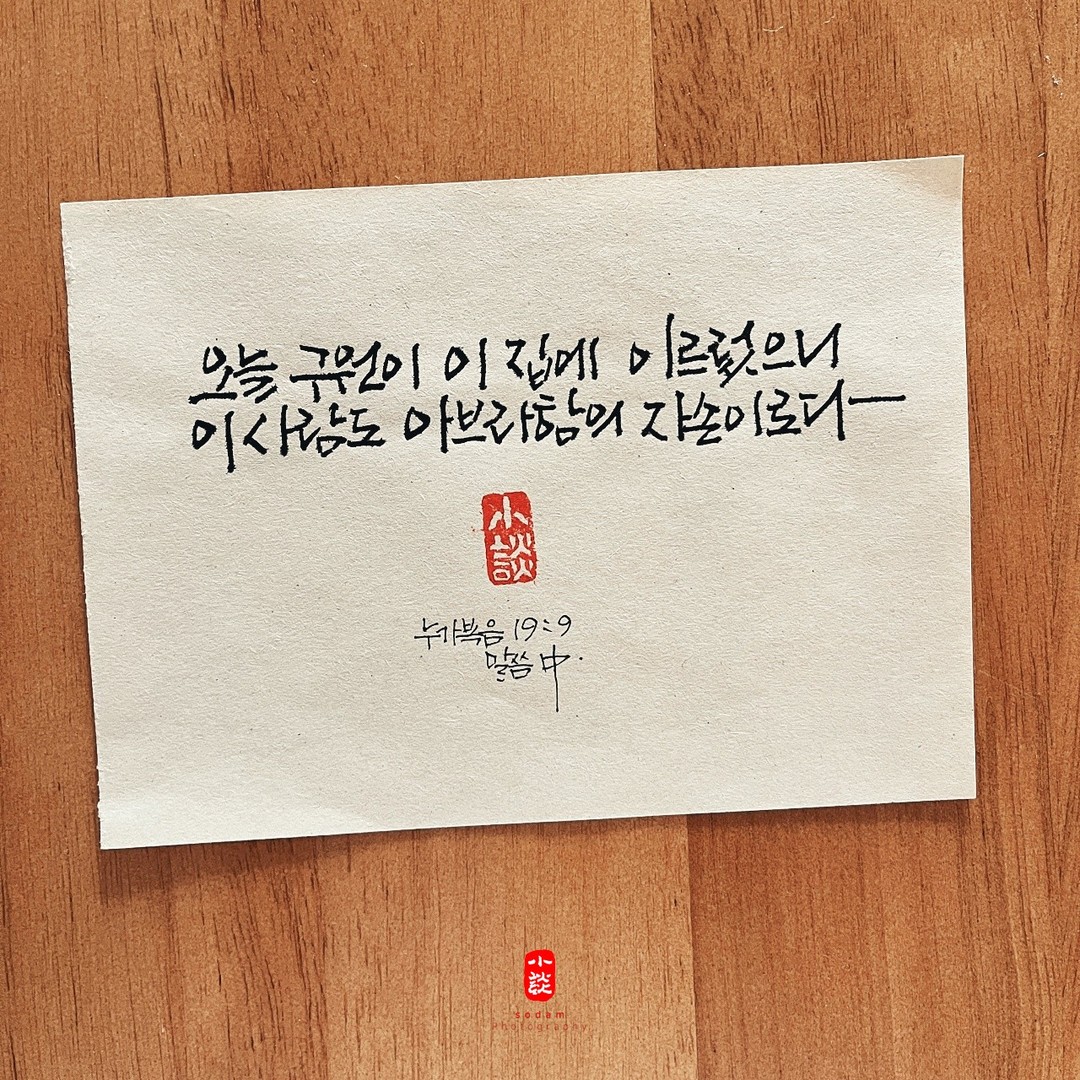 오늘 구원이 이 집에 이르렀으니
이 사람도 아브라함의 자손이로다
小談
누가복음 19:9
말씀 中.
小談
sodam
Photography